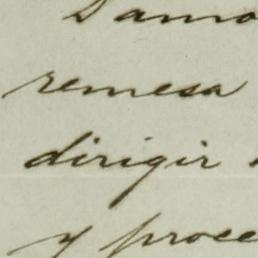 Damo
remesa
dirigir
y proce